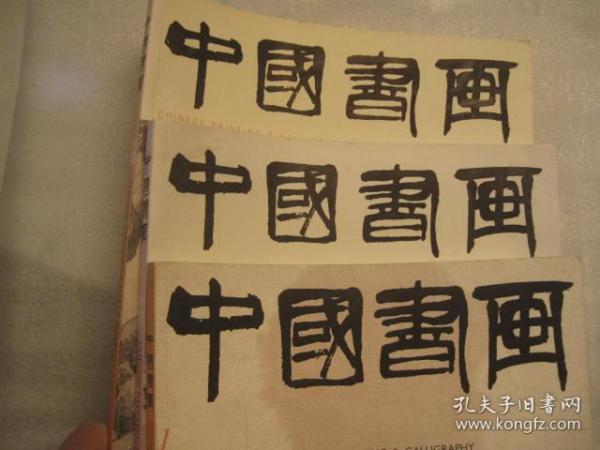 中國書画
CHINESE PAINTING & CALLIG
中國書画
中國書画
& CALLIGRAPHY
孔夫子旧书网
www.kongfz.com